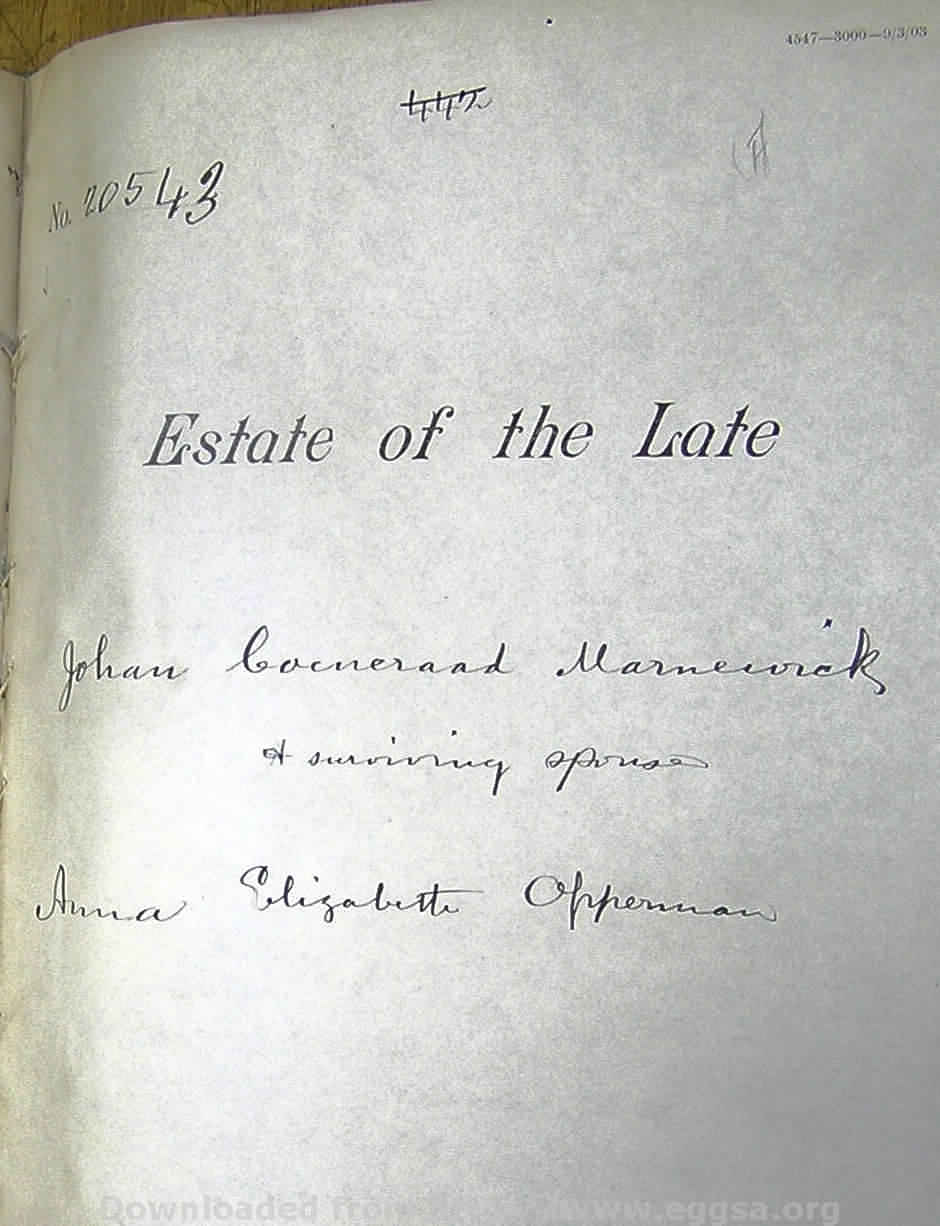 4547—3000—9/3/03
442
No. 20543
Estate of the Late
Johan Coeneraad Marnewick
& surviving spouse
Anna Elizabeth Opperman
Downloaded from www.eggsa.org